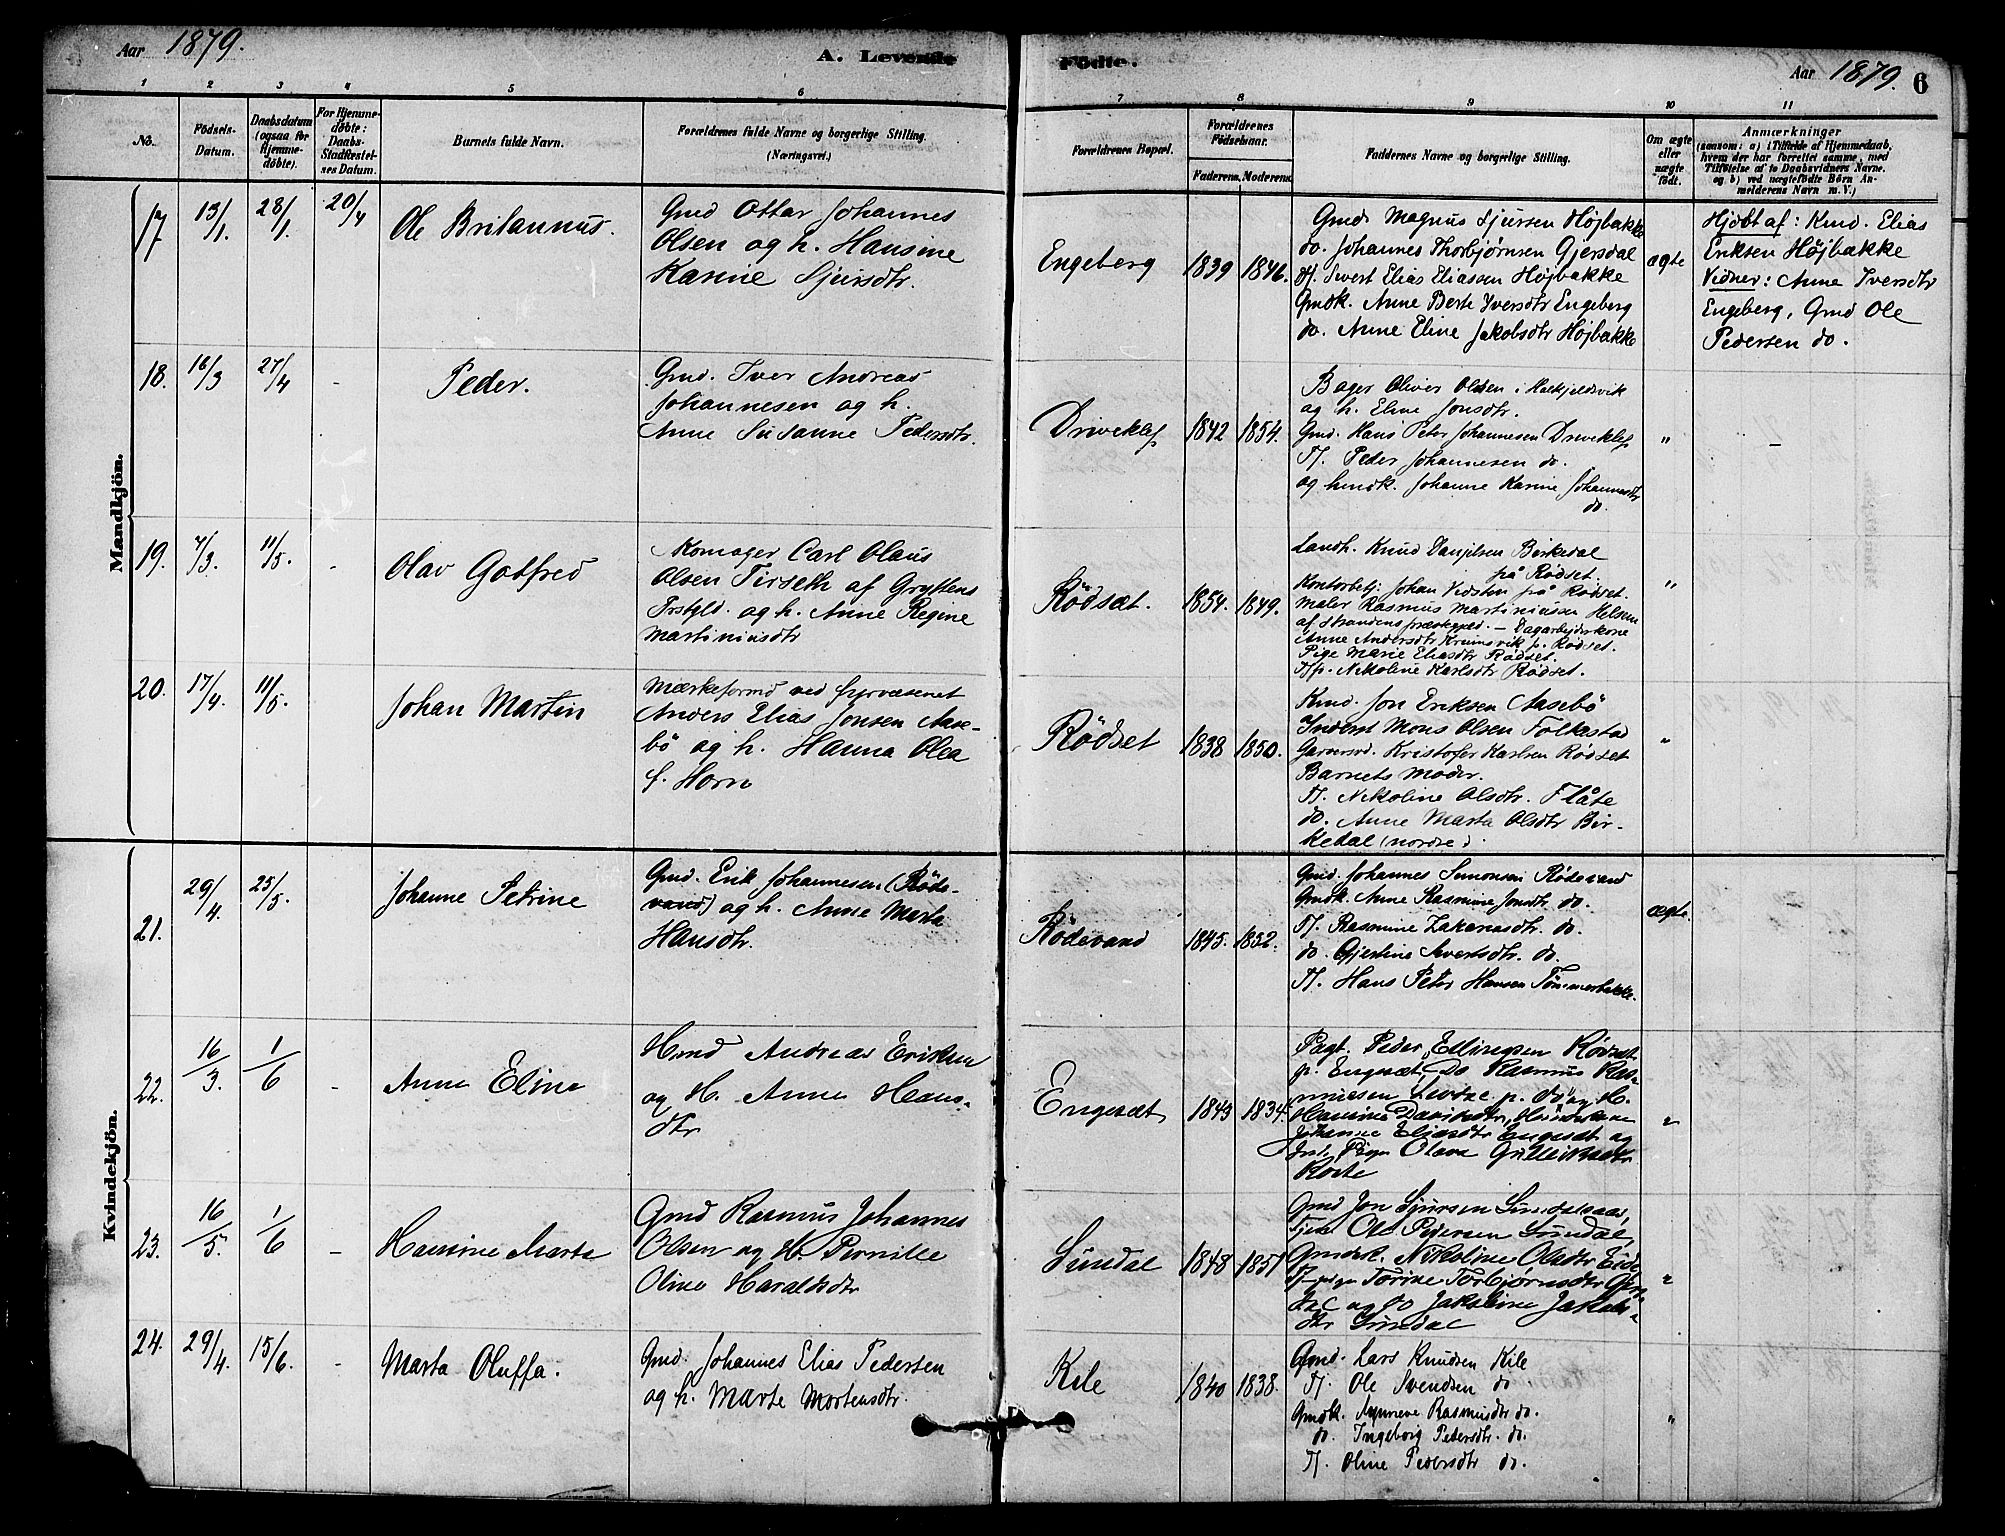 Aar 1879.
A. Levende Födte.
Aar 1879. 6
1 2 3 4 5 6 7 8 9 10 11
No.
Födsels-Datum.
Daabsdatum (ogsaa for Hjemmedöbte).
For Hjemmedöbte: Daabs-Stadfæstelses Datum.
Barnets fulde Navn.
Forældrenes fulde Navne og borgerlige Stilling. (Næringsvei.)
Forældrenes Bopæl.
Forældrenes Födselsaar.
Faderens. Moderens.
Faddernes Navne og borgerlige Stilling.
Om ægte eller uægte födt.
Anmærkninger
(saasom: a) i Tilfælde af Hjemmedaab, hvem der har forrettet samme, med Tilföielse af to Daabsvidners Navne. og b) ved uægtefödte Börn Anmelderens Navn m. V.)
Mandkjön.
17 13/1. 28/1. 20/4 Ole Britannus.
Gmd Ottar Johannes
Olsen og h. Hansine
Karine Sjursdtr.
Engeberg 1839 1846.
Gmd. Magnus Sjursen Højbakke
do. Johannes Thorbjørnsen Gjersdal
Tj. Sivert Elias Eliassen Højbakke
Gmdk. Anne Berte Iversdtr Engeberg
do. Anne Eline Jakobsdtr Højbakke
ægte
Hjdbt af: Kmd. Elias
Eriksen Højbakke
Vidner: Anne Iversdtr
Engeberg, Gmd Ole
Pedersen do.
18. 16/3 27/4 - Peder.
Gmd. Iver Andreas
Johannesen og h.
Anne Susanne Pedersdtr.
Driveklep 1842 1854.
Bager Oliver Olsen i Halkjeldsvik
og h. Eline Jonsdtr.
Gmd. Hans Peter Johannesen Driveklep
Tj. Peder Johannesen do.
og hmdk. Johanne Karine Johannesdtr
do.
" -
19. 7/3. 11/5. - Olav Gotfred
Komager Carl Olaus
Olsen Tirseth af Gryttens
Prstgld. og h. Anne Regine
Martiniusdtr
Rödsæt. 1854. 1849.
Landh. Knud Danjelsen Birkedal
på Rødset.
Kontorbetj. Johan Vidsten på Rødset.
Maler Rasmus Martiniussen Helsem
af Strandens præstegjeld. - Dagarbejderkone
Anne Andersdtr Krumsvik p. Rødset.
Pige Marie Eliasdtr Rødset.
Tjp. Nikoline Karlsdtr Rødset.
"
20. 17/4. 11/5. Johan Martin
Mærkeformd ved Fyrvæsenet
Anders Elias Jonsen Aase-
bö og h. Hanna Olea
f. Horn
Rödset 1838 1850.
Kmd. Jon Eriksen Aasebö
Inderst Mons Olsen Folkestad
Kristofer Karlsen Rødset
Barnets Moder.
Tj. Nikoline Olsdtr. Flåte
do. Anne Marta Olsdtr Bir-
kedal (nordre)
"
Kvindekjön.
21. 29/4. 25/5. Johanne Petrine
Gmd. Erik Johannesen (Röde-
vand) og h. Anne Marta
Hansdtr.
Rödevand 1845. 1852.
Gmd. Johannes Simonsen Rødevand
Gmdk. Anne Rasmine Jonsdtr. do.
Tj. Rasmine Zakariasdtr. do.
do. Gjertine Sivertsdtr. do.
Tj. Hans Peter Hansen Tömmerbakke.
ægte
22. 16/3. 1/6 - Anne Eline
Hmd Andreas Eriksen
og H. Anne Hans-
dtr
Engesæt 1843 1834.
Pagt. Peder Ellingsen Rövset
p. Engesæt, Do Rasmus Ras-
mussen p. do og H.
Hansine Davidsdtr,
Johanne Eliasdtr Engesæt og
Pigen Olava Gullik
"
23. 16/5. 1/6 - Hansine Marte
Gmd Rasmus Johannes
Olsen og H. Pernille
Oline Haraldsdtr
Sundal 1848 1851
Gmd Jon Sjursen
Ole Pedersen Sundal,
Gmdsk. Nikoline Olsdtr Eide
Tj pige Torine Torbjørnsdtr
og do Jakobine Jakobs-
dtr Sundal
"
24. 29/4. 15/6. - Marta Oluffa.
Gmd. Johannes Elias Pedersen
og h. Marte Mortensdtr.
Kile 1840 1838.
Gmd. Lars Knudsen Kile
Tj. Ole Svendsen do
Gmdk. Synneve Rasmusdtr do.
do. Ingeborg Pedersdtr. do.
Tj. Oline Pedersdtr do.
"